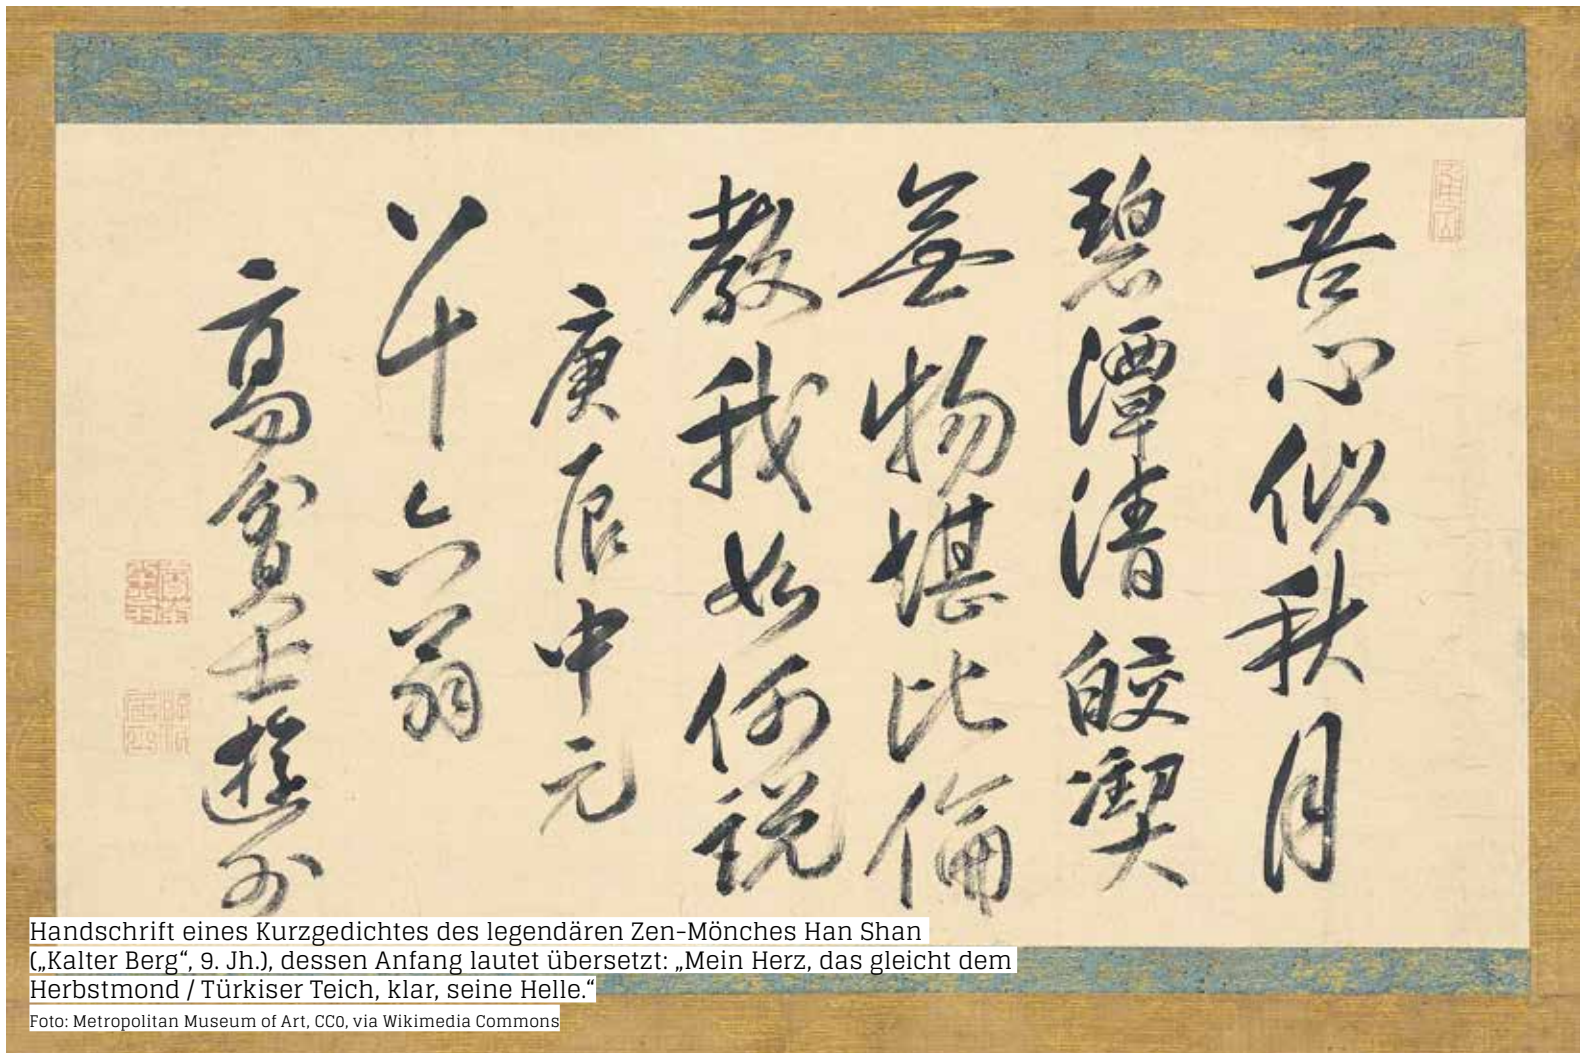 吾心似秋月
碧潭清皎潔
無物堪比倫
教我如何説
庚辰中元
八十六翁
高貧士遊外
Handschrift eines Kurzgedichtes des legendären Zen-Mönches Han Shan
(„Kalter Berg“, 9. Jh.), dessen Anfang lautet übersetzt: „Mein Herz, das gleicht dem
Herbstmond / Türkiser Teich, klar, seine Helle.“
Foto: Metropolitan Museum of Art, CC0, via Wikimedia Commons